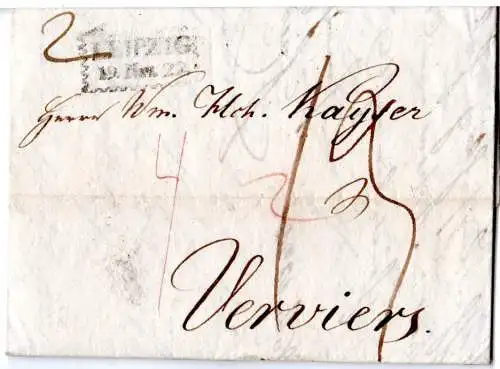 2
LEIPZIG
19. Nov. 22.
Herrn Wm. Hch. Kayser
4 2
13
Verviers.